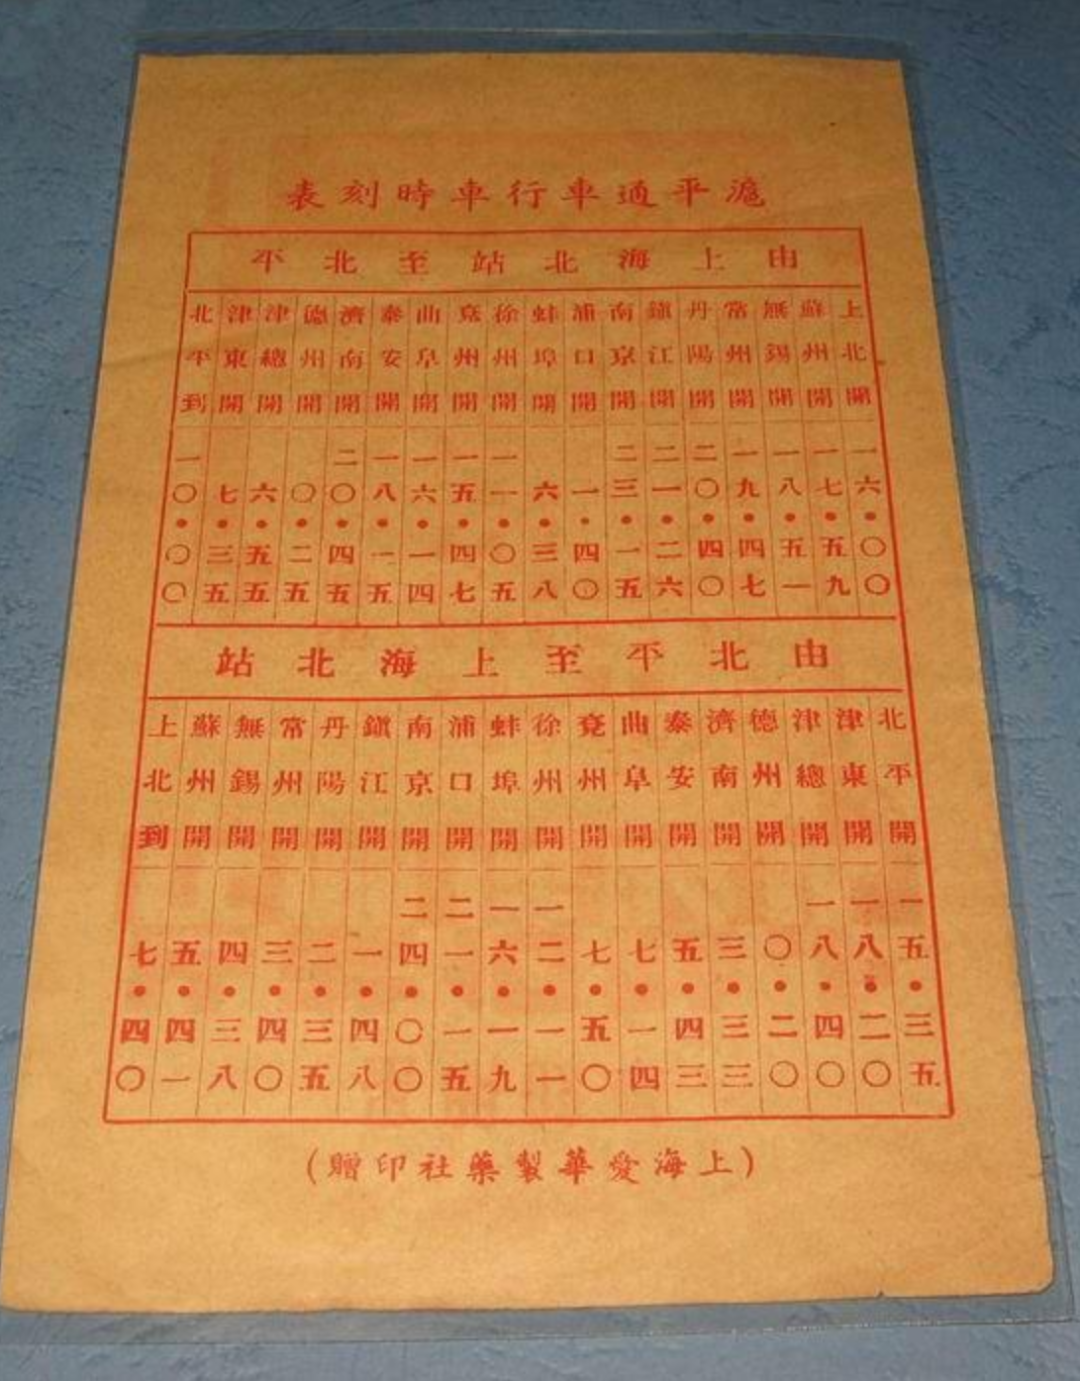 滬平通車行車時刻表
由上海北站至北平
上北開一六•〇〇
蘇州開一七•五九
無錫開一八•五一
常州開一九•四七
丹陽開二〇•四〇
鎮江開二一•二六
南京開二三•一五
浦口開一•四〇
蚌埠開六•三八
徐州開一一•〇五
兗州開一五•四七
曲阜開一六•一四
泰安開一八•一五
濟南開二〇•四五
德州開〇•二五
津總開六•五五
津東開七•三五
北平到一〇•〇〇
由北平至上海北站
北平開一五•三五
津東開一八•二〇
津總開一八•四〇
德州開〇•二〇
濟南開三•三三
泰安開五•四三
曲阜開七•一四
兗州開七•五〇
徐州開一二•一一
蚌埠開一六•一九
浦口開二一•一五
南京開二四•〇〇
鎮江開一•四八
丹陽開二•三五
常州開三•四〇
無錫開四•三八
蘇州開五•四一
上北到七•四〇
(上海愛華製藥社印贈)